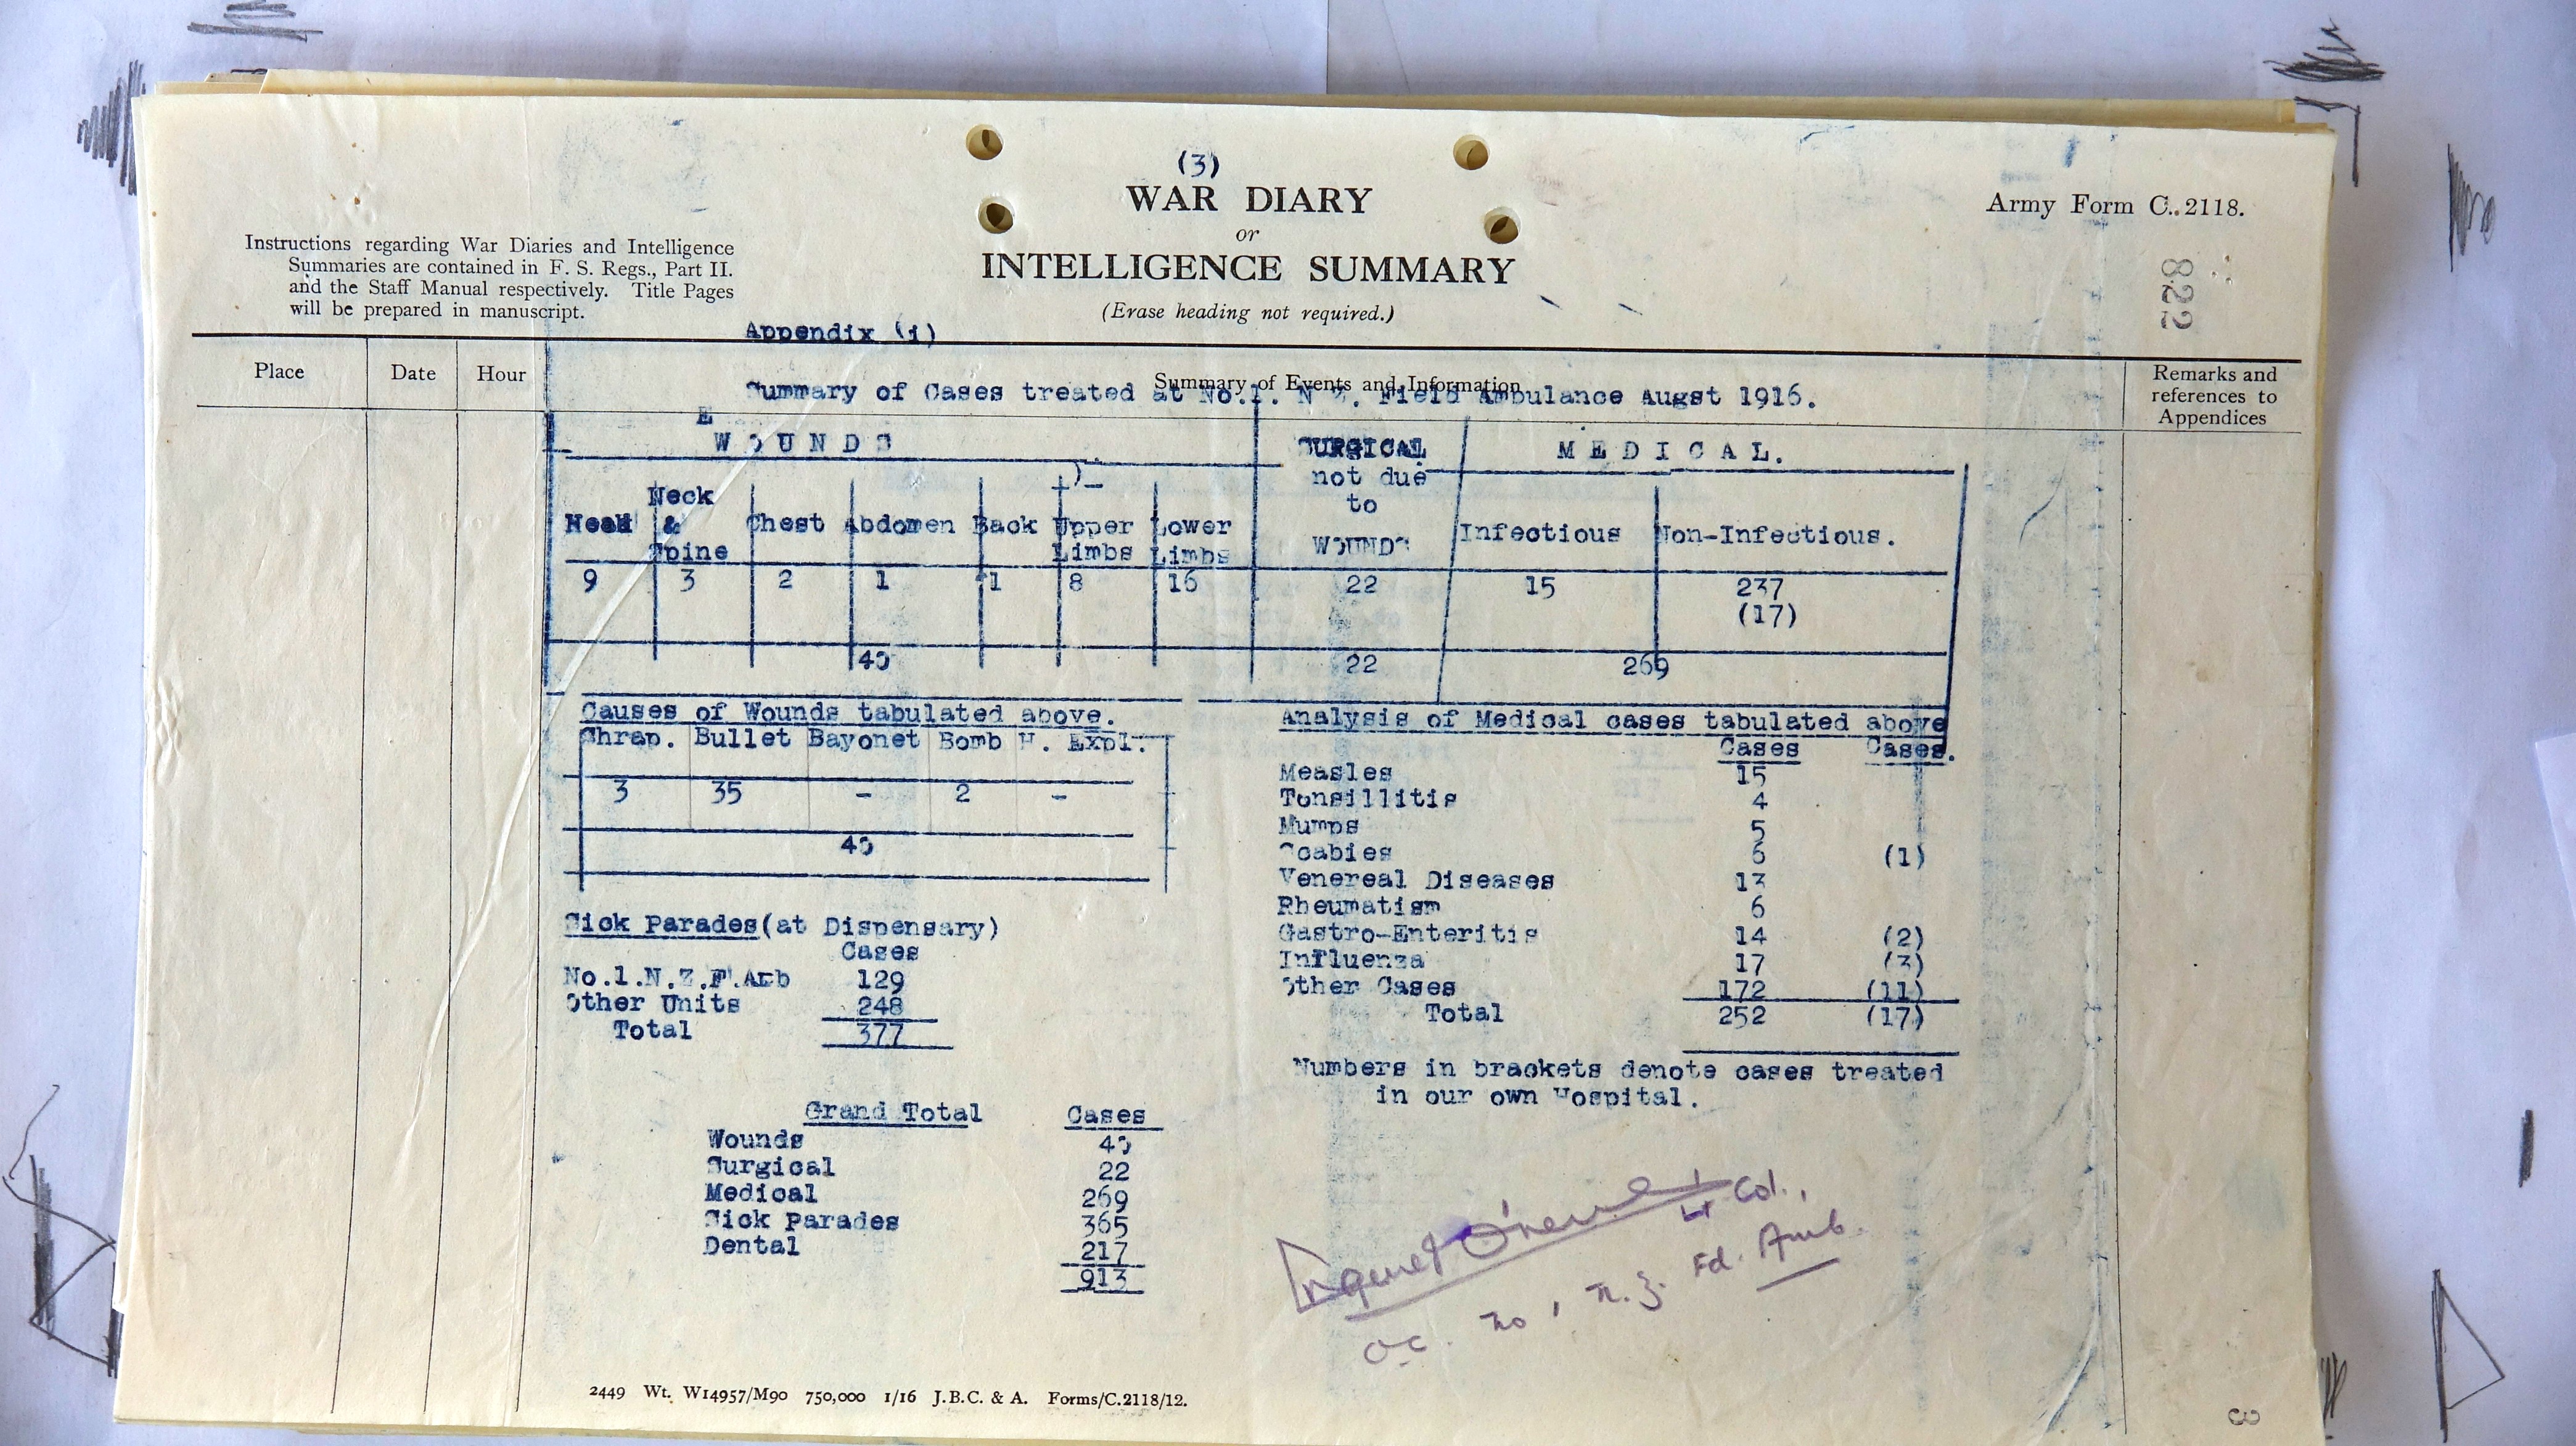 (3)
WAR DIARY
or
INTELLIGENCE SUMMARY
(Erase heading not required.)
Army Form C. 2118.
822
Instructions regarding War Diaries and Intelligence
Summaries are contained in F. S. Regs., Part II.
and the Staff Manual respectively. Title Pages
will be prepared in manuscript.
Appendix (i)
Place Date Hour Summary of Events and Information Remarks and
references to
Appendices
Summary of Cases treated at No.1. N Z. Field Ambulance Augst 1916.
E
WOUNDS SURGICAL
not due
to
WOUNDS
MEDICAL.
Head Neck
&
Spine Chest Abdomen Back Upper
Limbs Lower
Limbs Infectious Non-Infectious.
9 3 2 1 1 8 16 22 15 237
(17)
40 22 269
Causes of Wounds tabulated above.
Shrap. Bullet Bayonet Bomb H. Expl.
3 35 - 2 -
40
Sick Parades(at Dispensary)
Cases
No.1.N.Z.F.Amb 129
Other Units 248
Total 377
Grand Total Cases
Wounds 40
Surgical 22
Medical 269
Sick Parades 365
Dental 217
913
Analysis of Medical cases tabulated above
Cases Cases.
Measles 15
Tonsillitis 4
Mumps 5
Scabies 6 (1)
Venereal Diseases 13
Rheumatism 6
Gastro-Enteritis 14 (2)
Influenza 17 (3)
Other Cases 172 (11)
Total 252 (17)
Numbers in brackets denote cases treated
in our own Hospital.
Lt Col.,
O.C. No 1 N.Z. Fd. Amb.
2449 Wt. W14957/M90 750,000 1/16 J.B.C. & A. Forms/C.2118/12.
3